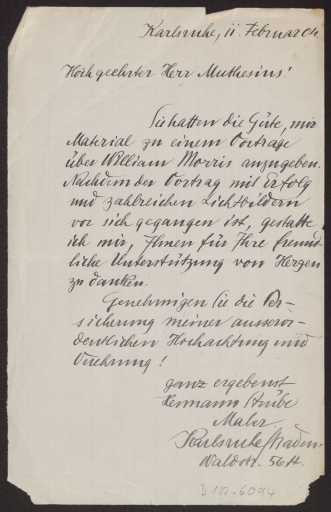 Karlsruhe, 11 Februar 04.
Hochgeehrter Herr Muthesius!
Sie hatten die Güte, mir
Material zu einem Vortrage
über William Morris anzugeben.
Nachdem der Vortrag mit Erfolg
und zahlreichen Lichtbildern
vor sich gegangen ist, gestatte
ich mir, Ihnen für Ihre freund-
liche Unterstützung von Herzen
zu danken.
Genehmigen Sie die Ver-
sicherung meiner ausseror-
dentlichen Hochachtung und
Verehrung!
ganz ergebenst
Hermann
Maler
Karlsruhe/Baden
Waldstr. 56
D 102-6094